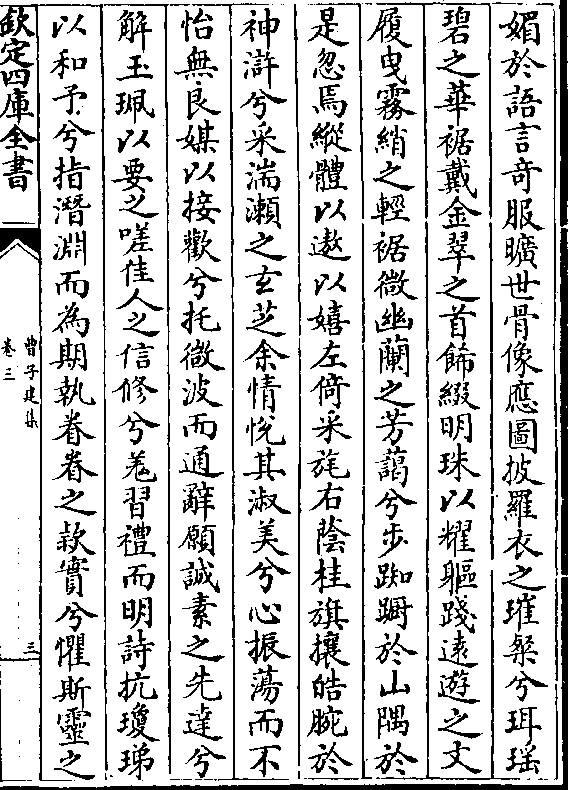 媚於語言奇服曠世骨像應圖披羅衣之璀粲兮珥瑶
碧之華裾戴金翠之首飾綴明珠以耀軀踐逺遊之文
履曵霧綃之輕裾微幽蘭之芳藹兮步踟蹰於山隅於
是忽焉縱體以遨以嬉左倚采旄右蔭桂旗攘皓腕於
神滸兮采湍瀬之玄芝余情悦其淑美兮心振蕩而不
怡無良媒以接歡兮托微波而通辭願誠素之先達兮
解玉珮以要之嗟佳人之信修兮羌習禮而明詩抗瓊珶
以和予兮指潛淵而為期執眷眷之款實兮懼斯靈之
欽定四庫全書
曹子建集
卷三
三